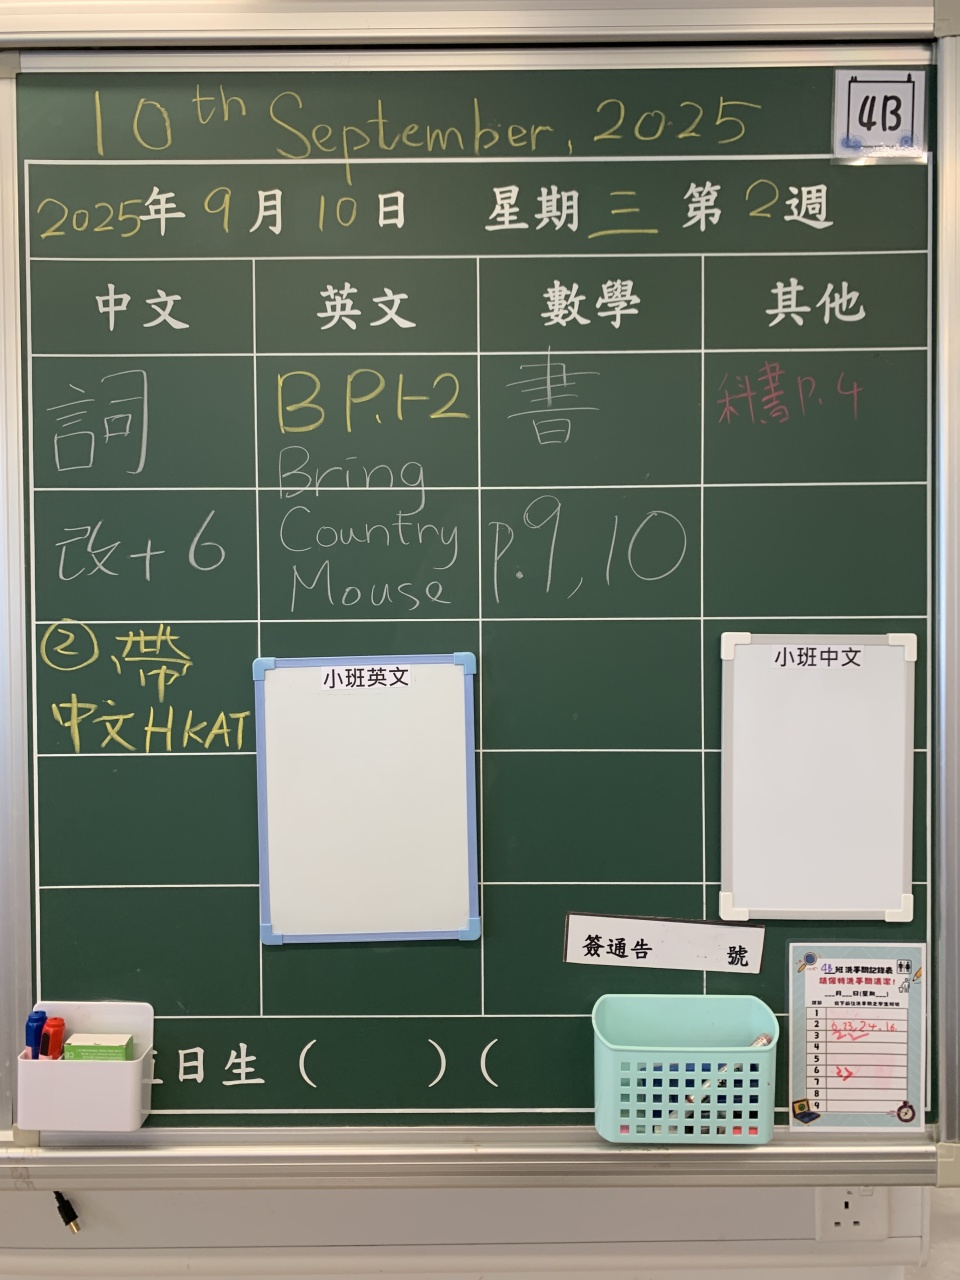 10th September, 2025
4B
2025年 9月 10日 星期三 第2週
中文 英文 數學 其他
詞
B P.1-2
書
科書 P. 4
Bring
Country
Mouse
改+6
p.9, 10
② 帶
中文 HKAT
小班英文
小班中文
簽通告 號
日生 ( ) (
4B班洗手間記錄表
請保持洗手間清潔!
___月___日(星期___)
1
2 6, 23, 24, 16
3
4
5
6
7
8
9